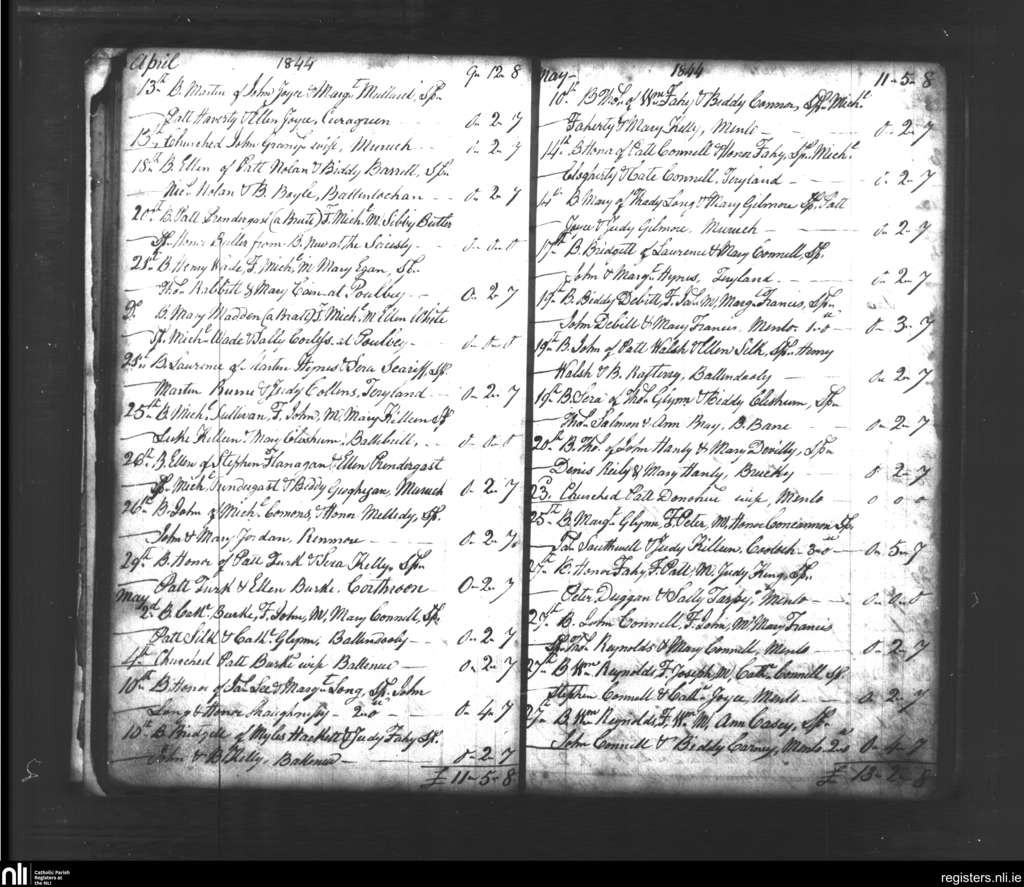 April 1844 9- 12- 8
13th B. Martin of John Joyce & Margt Mulland, Sp.
Patt Haverty & Ellen Joyce, Curagreen - 0- 2- 7
13th Churched John Grany's wife, Muruch - 0- 2- 7
18th B. Ellen of Patt Nolan & Biddy Barrett, Sp.
Mic. Nolan & B. Boyle, Ballenlochan - 0- 2- 7
20th B. Patt Prendergast (a Brate) F. Mich. M. Sibby Butler
Sp. Honor Butler from B. at the - 0- 0- 0
21st B. Henry Wade F. Mich. M. Mary Egan, Sp.
Thos. Rabbitt & Mary Cain at Poulbuy - 0- 2- 7
B. Mary Madden (a Bratt) F. Mich. M. Ellen White
Sp. Mich. Wade & Sally at Poulbuy - 0- 0- 0
25th B. Laurence of Martin Hynes & Sera Scariff, Sp.
Martin Burne & Judy Collens, Teryland - 0- 2- 7
25th B. Mich. Sullivan, F. John, M. Mary Killeen Sp
Luke Killeen & Mary Clishum, Ballebrit, - 0- 0- 0
26th B. Ellen of Stephen Flanagan & Ellen Prendergast
Sp. Mich. Prendergast & Biddy Geoghegan, Muruch 0- 2- 7
26th B. John of Mich. Comons, & Honor Melledy, Sp.
John & Mary Jordan, Renmore - 0- 2- 7
29th B. Honor of Patt Turk & Sera Kelly, Sp.
Patt Turk & Ellen Burke, Corthroon 0- 2- 7
May
2d B. Cath. Burke, F. John, M. Mary Connell, Sp.
Patt Silk & Cath. Glynn, Ballendooly - 0- 2- 7
4th Churched Patt Burke wife Ballenue - 0- 2- 7
10th B. Honor of Jas. Lee & Margt Long, Sp. John
Long & Honor Shaughnissy - 2-0 - 0- 4- 7
10th B. Bridgett of Myles Hackett & Judy Fahy Sp.
John & B. Kelly, Ballenue - 0- 2- 7
£ 11- 5- 8
May- 1844 11- 5- 8
10th B. Thos. of Wm Fahy & Biddy Connor, Sp. Mich.
Faherty & Mary Kelly, Menlo - 0- 2- 7
14th B. Honor of Patt Connell & Honor Fahy, Sp. Mich.
& Cate Connell, Teryland - 0- 2- 7
14th B. Mary of Thedy Long & Mary Gilmore Sp. Patt
Joyce & Judy Gilmore, Muruch - 0- 2- 7
17th B. Bridgett of Laurence & Mary Connell, Sp.
John & Margt Hynes, Teryland - 0- 2- 7
19th B. Biddy Debitt F. Jas. M. Margt Francis, Sp.
John Debitt & Mary Francis, Menlo 1-0 - 0- 3- 7
19th B. John of Patt Walsh & Ellen Silk, Sp. Henry
Walsh & B. Raftery, Ballendooly - 0- 2- 7
19th B. Sera of Thos. Glynn & Biddy Clishum, Sp.
Thos. Salmon & Ann Bray, B. Bane - 0- 2- 7
20th B. Thos. of John Hanly & Mary Devilly, Sp.
Denis Reily & Mary Hanly, - 0 2- 7
23. Churched Patt Donohue wife, Menlo - 0 0 0
25th B. Margt Glynn F. Peter, M. Honor Concannon Sp.
Jas. Southwell & Judy Killeen, Cooloch - 3-0 - 0- 5- 7
27th B. Honor Fahy F. Patt M. Judy King, Sp.
Peter Duggan & Sally Tarpy, Menlo - 0- 0- 0
27th B. John Connell F. John, M. Mary Francis
Sp. Thos. Reynolds & Mary Connell, Menlo - 0- 2- 7
27th B. Wm Reynolds F. Joseph, M. Cath. Connell Sp.
Stephen Connell & Cath. Joyce, Menlo - 0- 2- 7
B. Wm Reynolds, F. Wm M. Ann Casey, Sp.
John Connell & Biddy Carney, Menlo 2-0 0- 4- 7
£ 13- 2- 8
nli Catholic Parish
Registers at
the NLI
registers.nli.ie